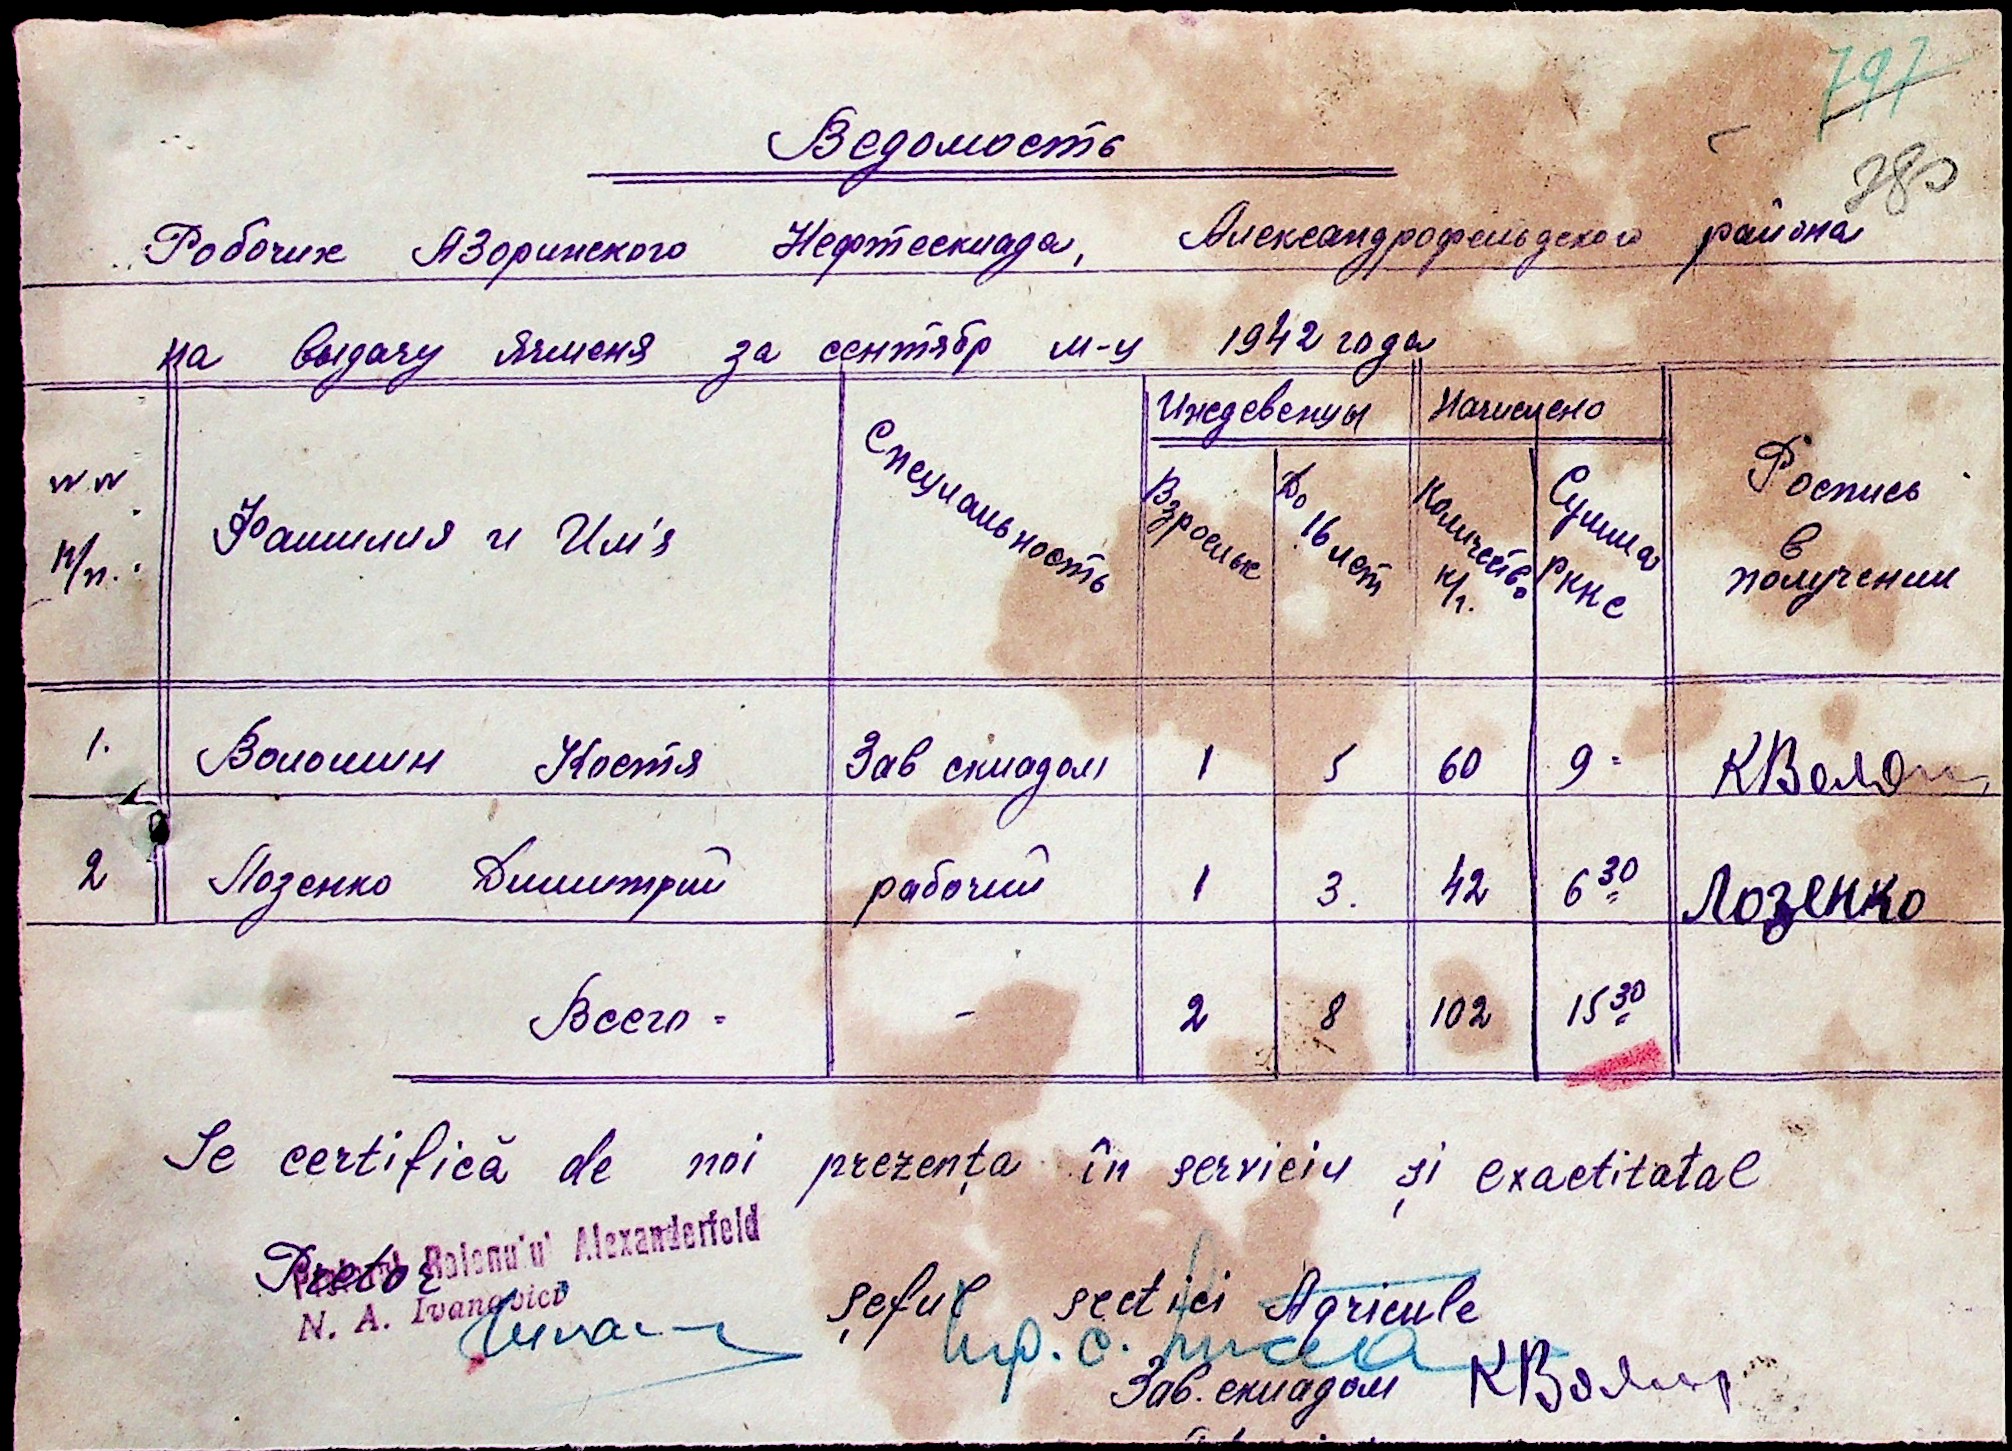 797
Ведомость
Робочих Азоринского Нефтесклада, Александрофельдского района
на выдачу ячменя за сентябр м-ц 1942 года
N N п/п. Фамилия и Им'я Специальность Иждевенцы Начислено Роспись в получении
Взрослых До 16 лет Количество к/г. Сумма РКНС
1. Волошин Костя Зав складом 1 5 60 9= КВоло
2 Лозенко Димитрий рабочий 1 3. 42 6 30 Лозенко
Всего = - 2 8 102 15 30
Se certifică de noi prezența în serviciu și exactitatal
Pretor Raionu'ui Alexanderfeld
N. A. Ivanovici
șeful secției Agricule
Зав. складом